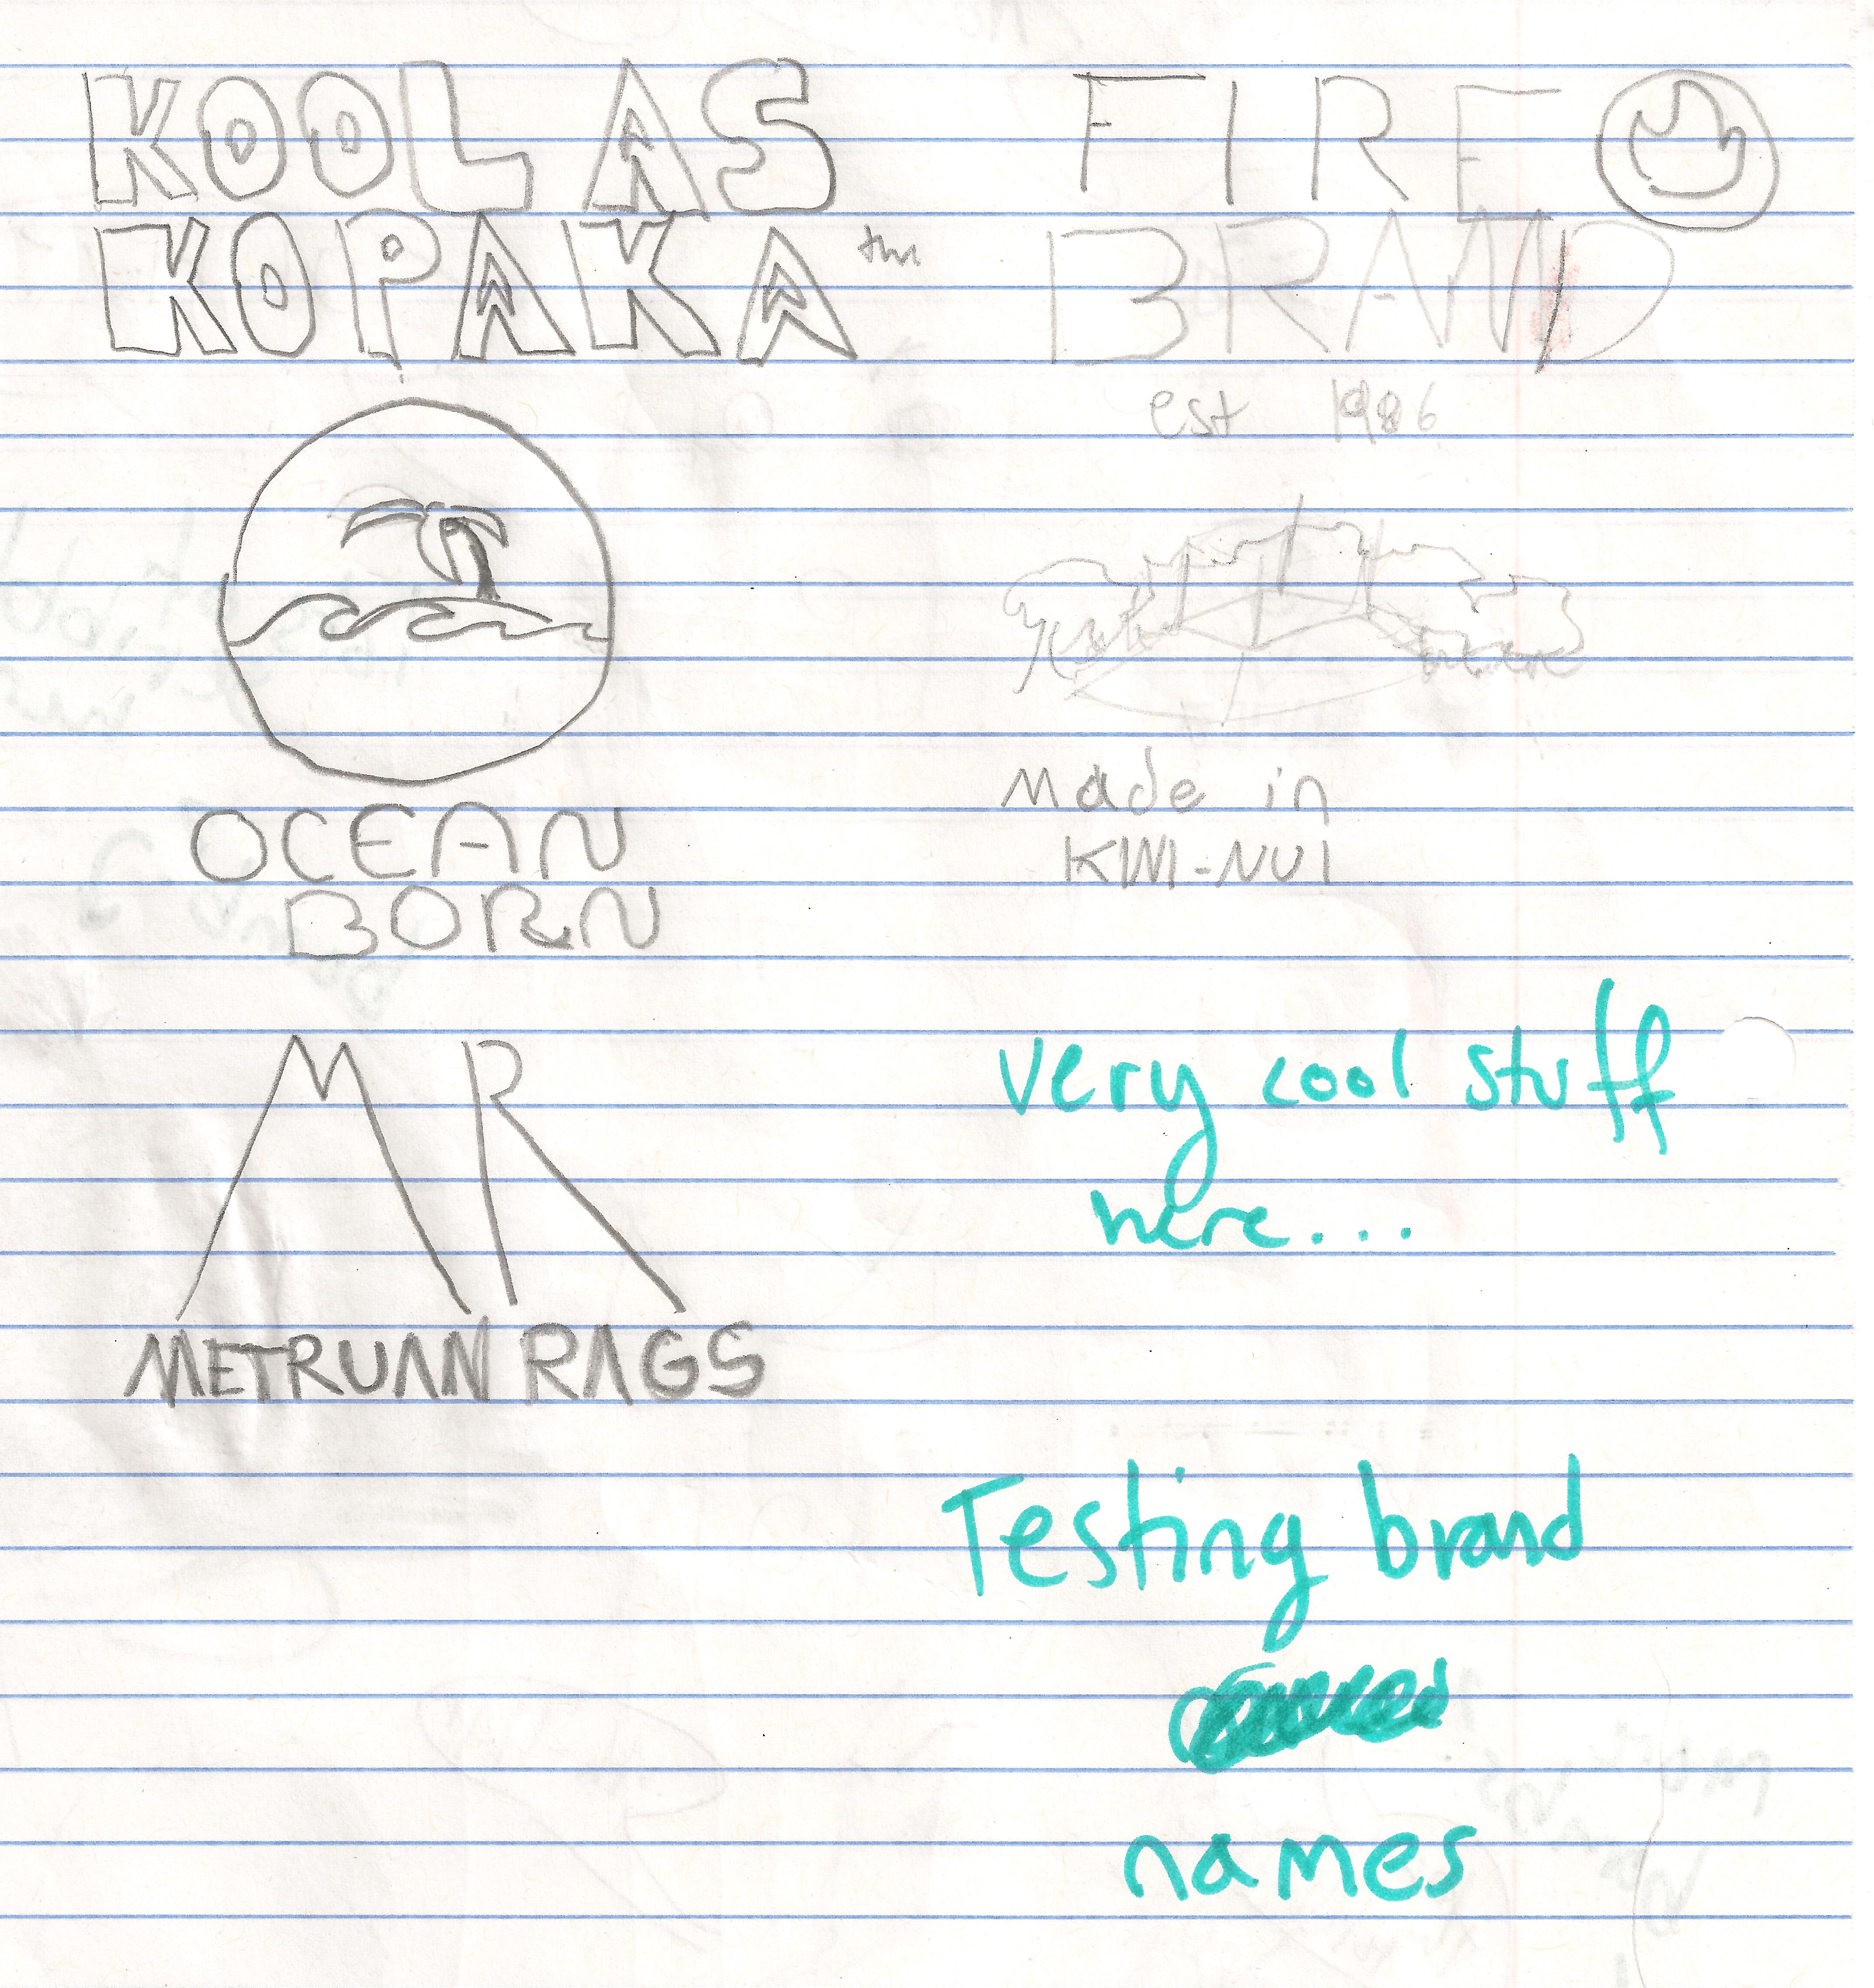 KOOL AS
KOPAKA tm
FIRE
BRAND
est 1986
OCEAN
BORN
made in
KINI-NUI
MR
METRUAN RAGS
very cool stuff
here...
Testing brand
names